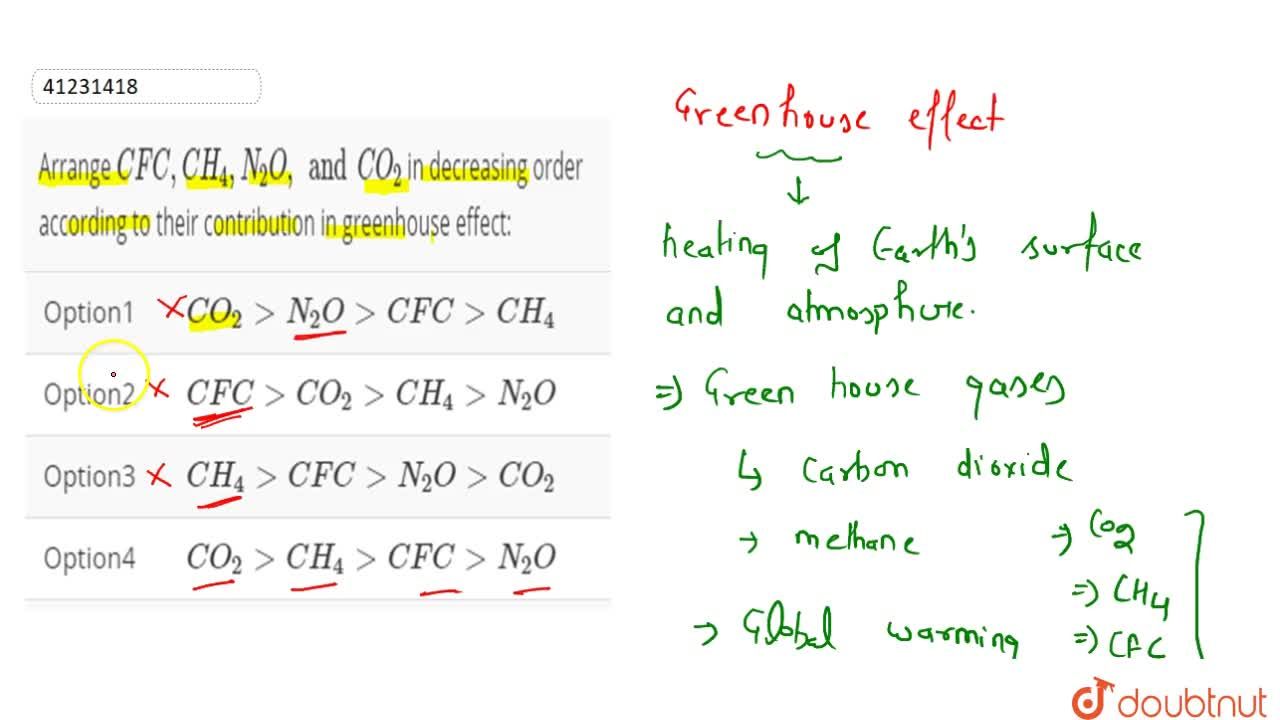 41231418
Arrange CFC, CH₄, N₂O, and CO₂ in decreasing order
according to their contribution in greenhouse effect:
Option1 ×CO₂ > N₂O > CFC > CH₄
Option2 × CFC > CO₂ > CH₄ > N₂O
Option3 × CH₄ > CFC > N₂O > CO₂
Option4 CO₂ > CH₄ > CFC > N₂O
Greenhouse effect
↓
heating of Earth's surface
and atmosphere.
⇒ Green house gases
↳ Carbon dioxide
→ methane
→ Global warming
⇒ CO₂
⇒ CH₄
⇒ CFC
doubtnut